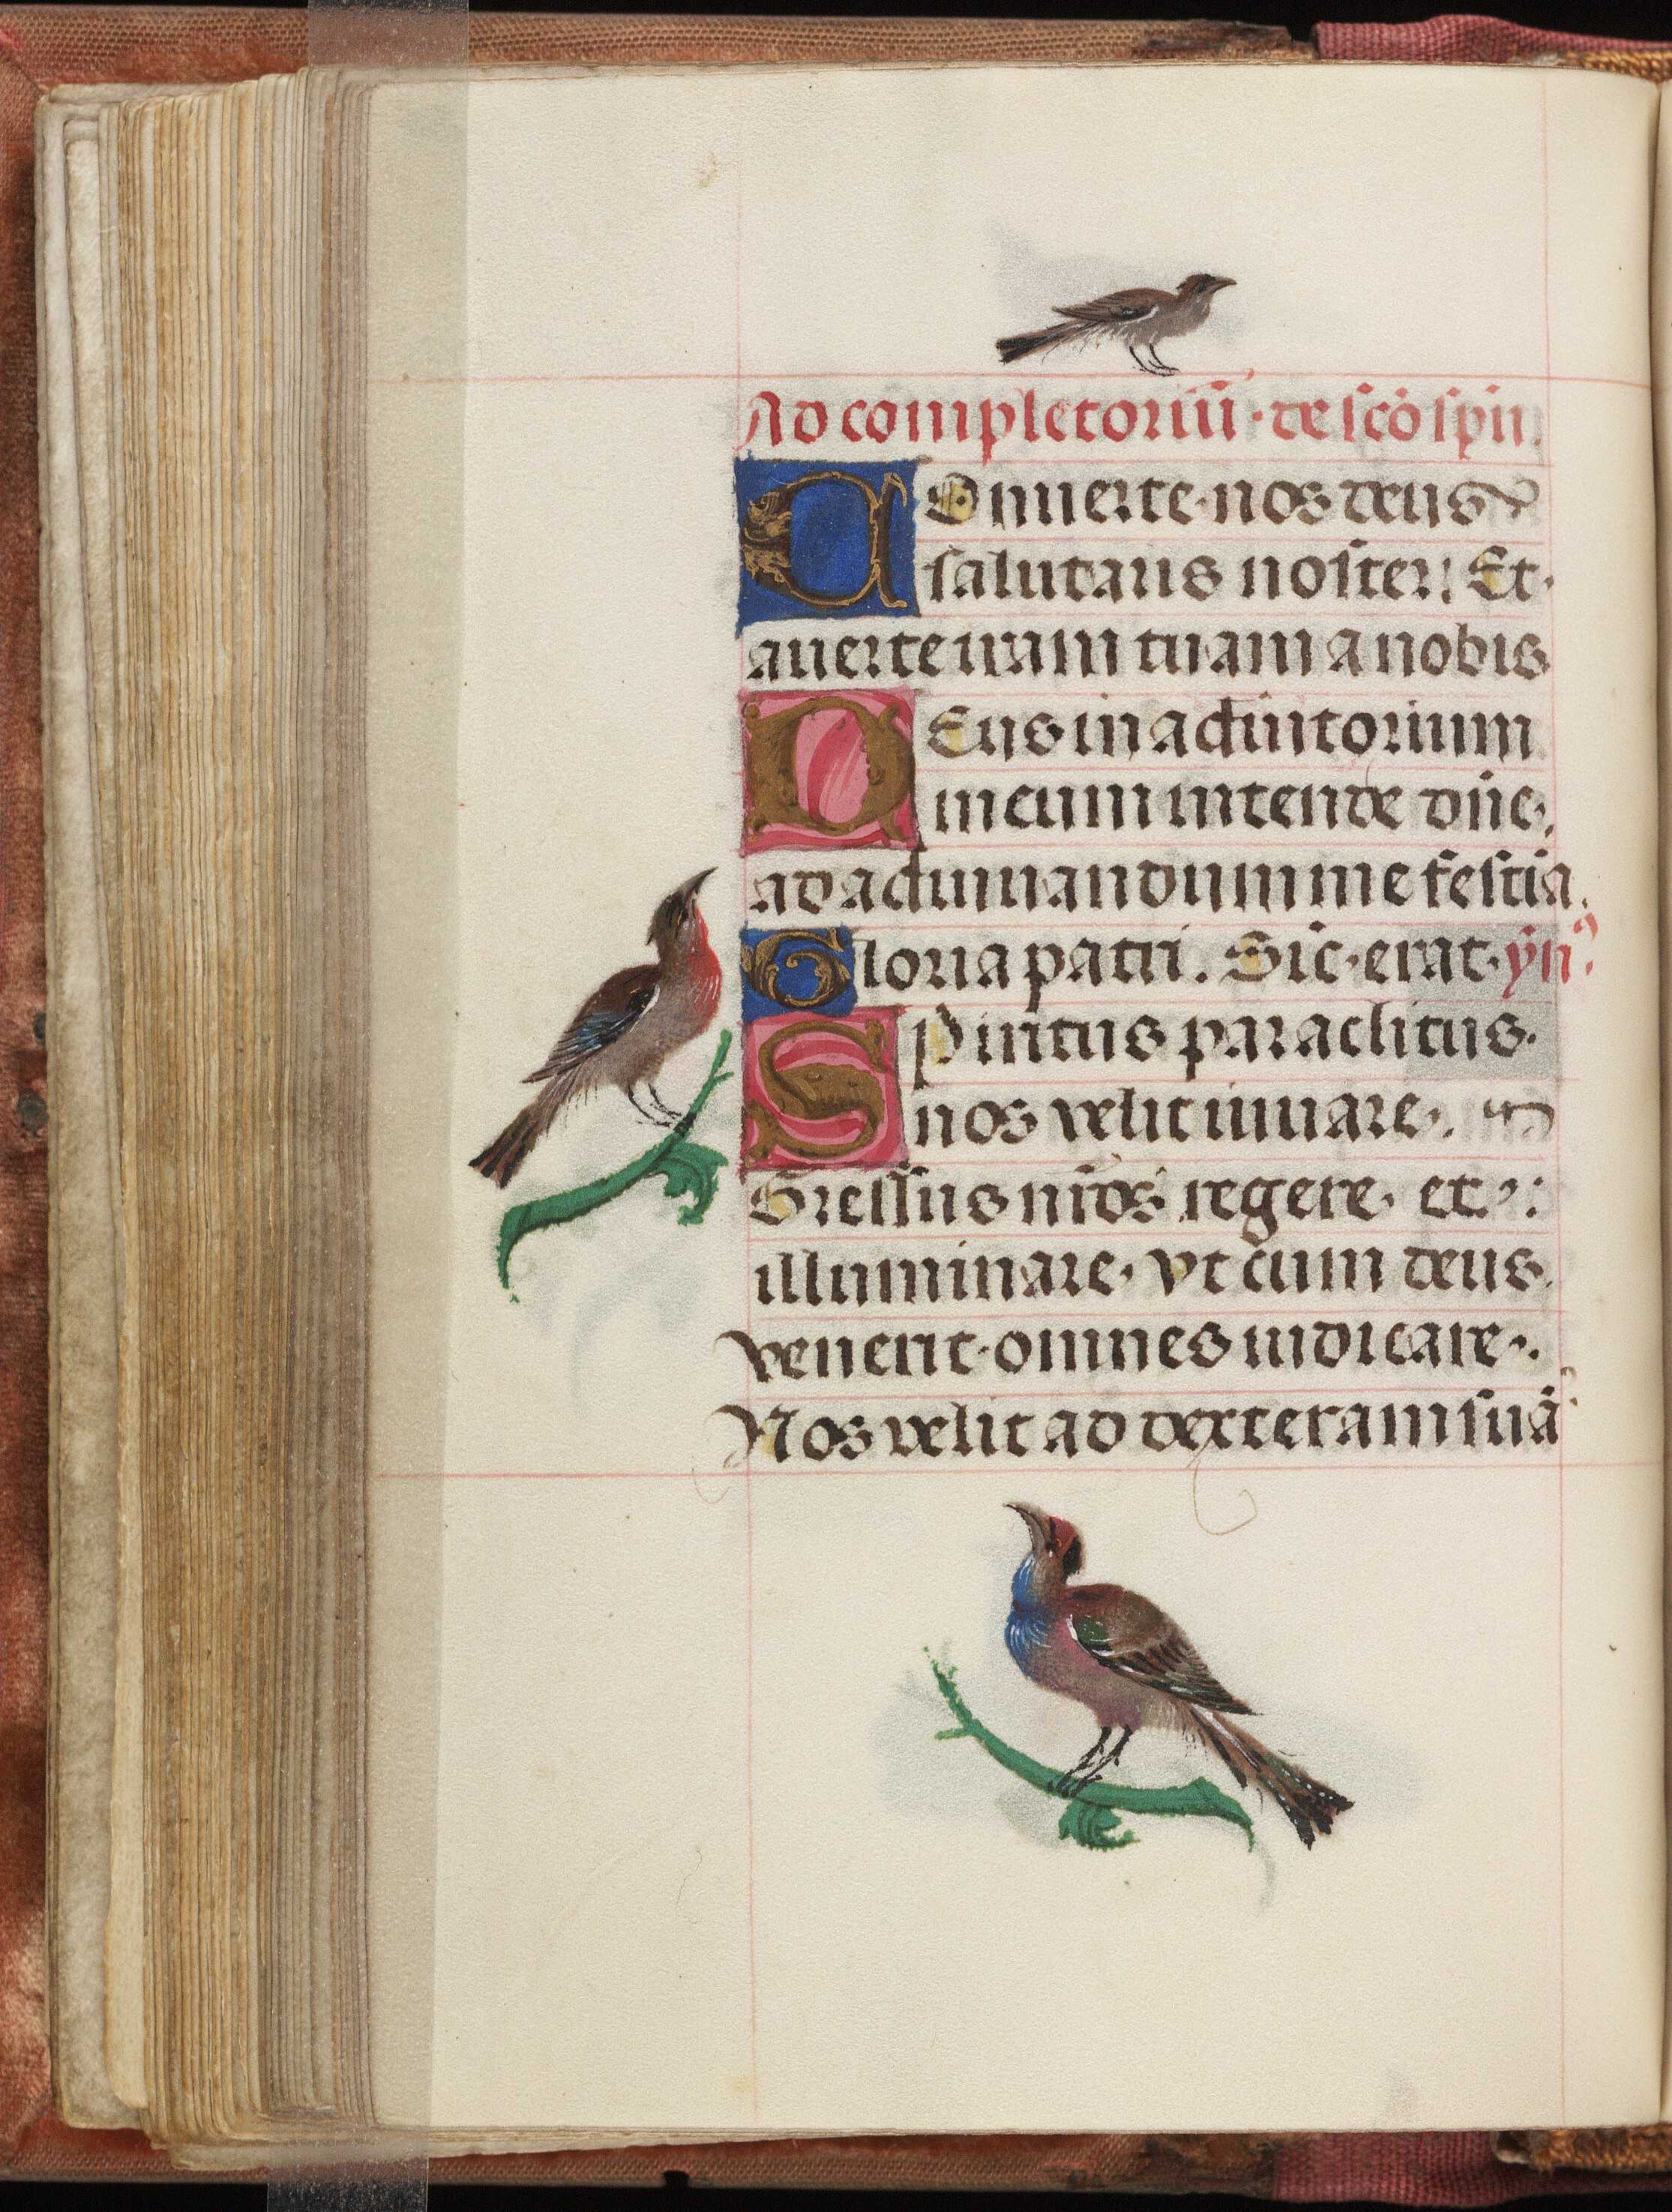 Ad completoriū · de scō spū.
COnuerte · nos deus
salutaris noster: Et ·
auerte iram tuam a nobis
DEus in adiutorium
meum intende dn̄e.
ad adiuuandum me festīa.
Gloria patri. Sic · erat · ȳn
SPiritus paraclitus.
nos velit iuuare.
Gressus nr̄os regere. et:
illuminare. vt cum deus.
venerit · omnes iudicare.
Nos velit ad dexteram suā